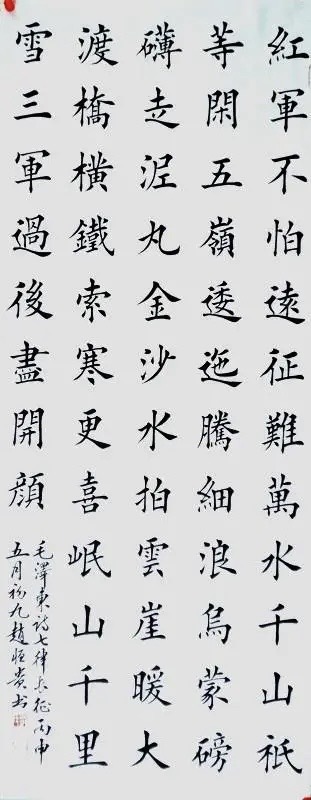 紅軍不怕遠征難萬水千山祇
等閑五嶺逶迤騰細浪烏蒙磅
礴走泥丸金沙水拍雲崖暖大
渡橋橫鐵索寒更喜岷山千里
雪三軍過後盡開顔
毛澤東詩七律長征丙申
五月初九趙恒貴书